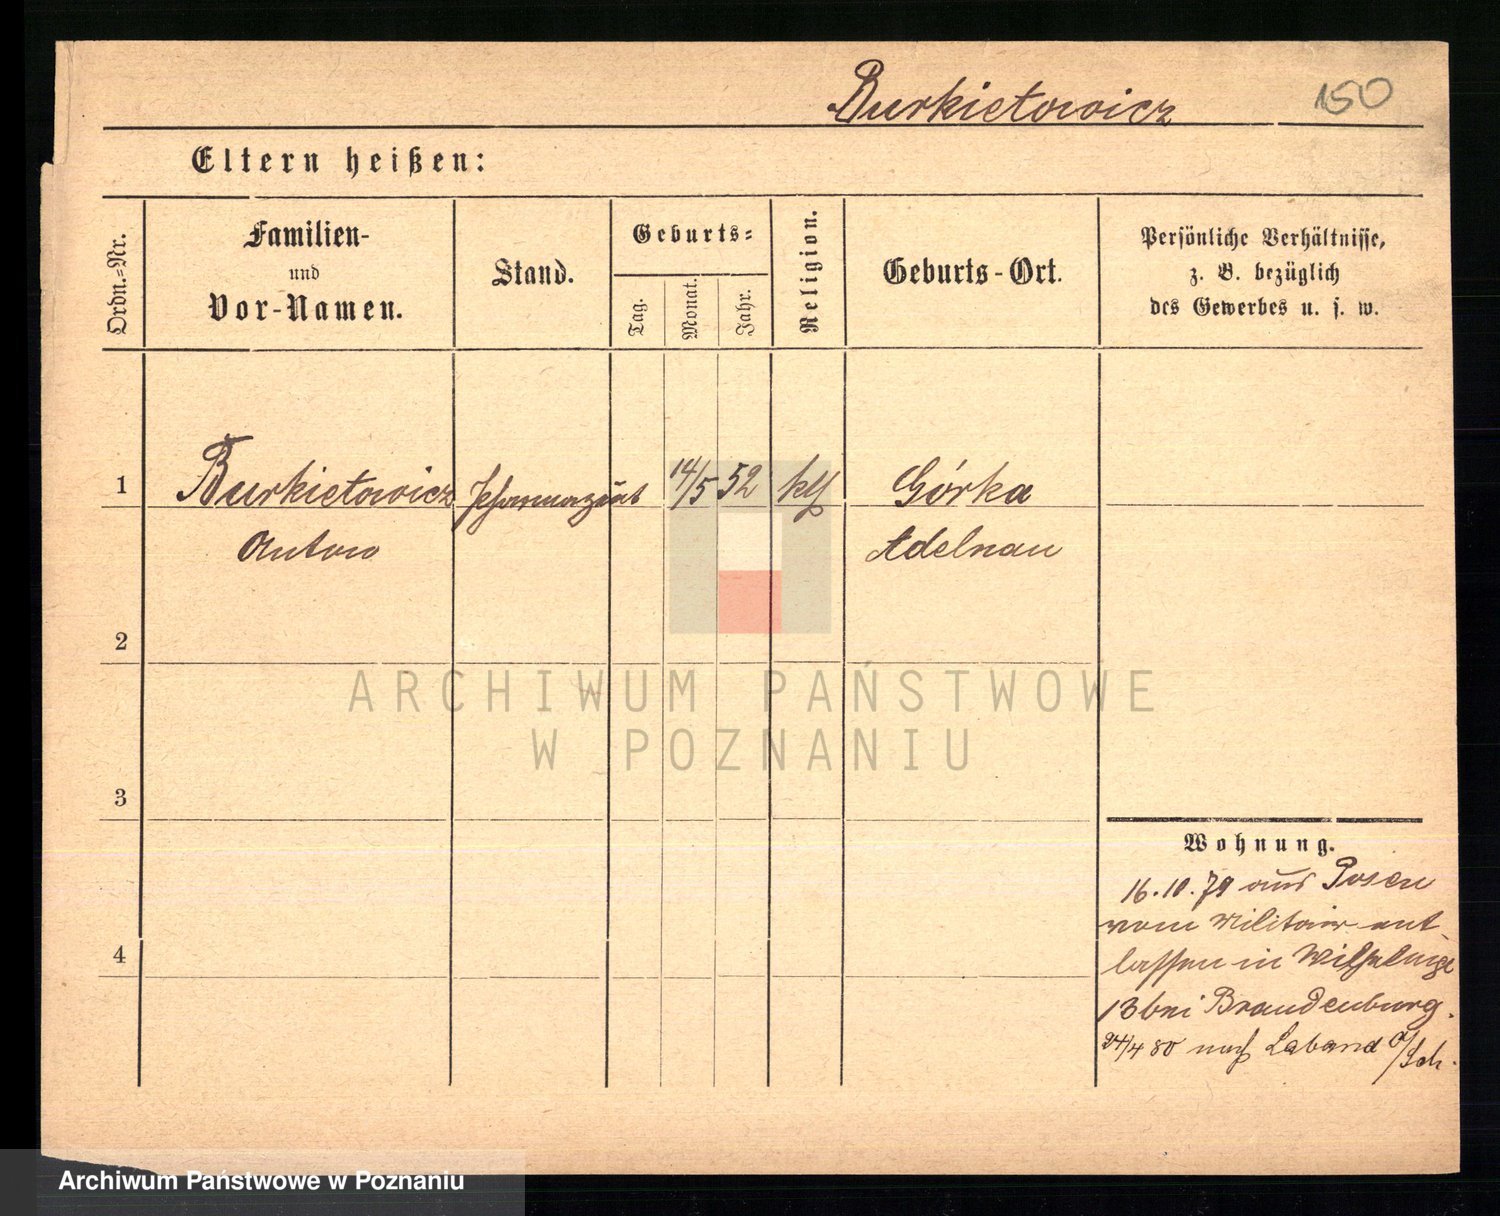 Burkietowicz 150
Eltern heißen:
Ordn.-Nr.
Familien-
und
Vor-Namen.
Stand.
Geburts-
Tag.
Monat.
Jahr.
Religion.
Geburts-Ort.
Persönliche Verhältnisse,
z. B. bezüglich
des Gewerbes u. s. w.
1 Burkietowicz 14/5 52 kth Górka
Anton Adelnau
2
3
4
Wohnung.
16.10.79 aus Posen
vom Militair ent-
lassen in Wilhelmspl
13 bei Brandenburg.
24/4 80 nach Laband O/Sch.
ARCHIWUM PAŃSTWOWE
W POZNANIU
Archiwum Państwowe w Poznaniu